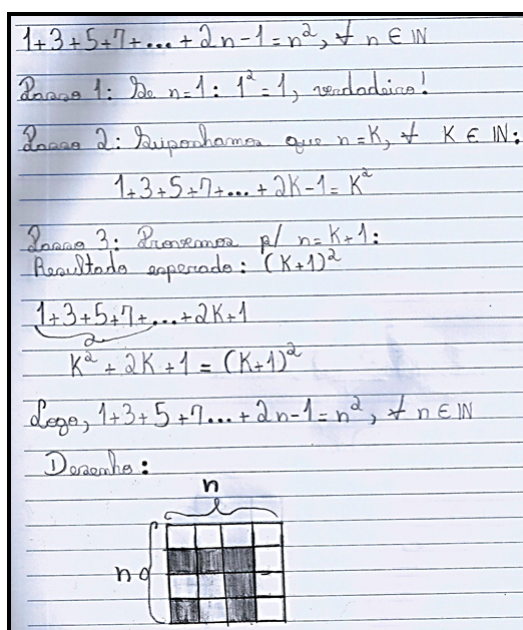 1+3+5+7+...+2n-1=n², ∀ n ∈ IN
Passo 1: Se n=1: 1²=1, verdadeiro!
Passo 2: Suponhamos que n=K, ∀ K ∈ IN:
1+3+5+7+...+2K-1=K²
Passo 3: Provemos p/ n=K+1:
Resultado esperado: (K+1)²
1+3+5+7+...+2K+1
K²+2K+1=(K+1)²
Logo, 1+3+5+7...+2n-1=n², ∀ n ∈ IN
Desenho:
n
n